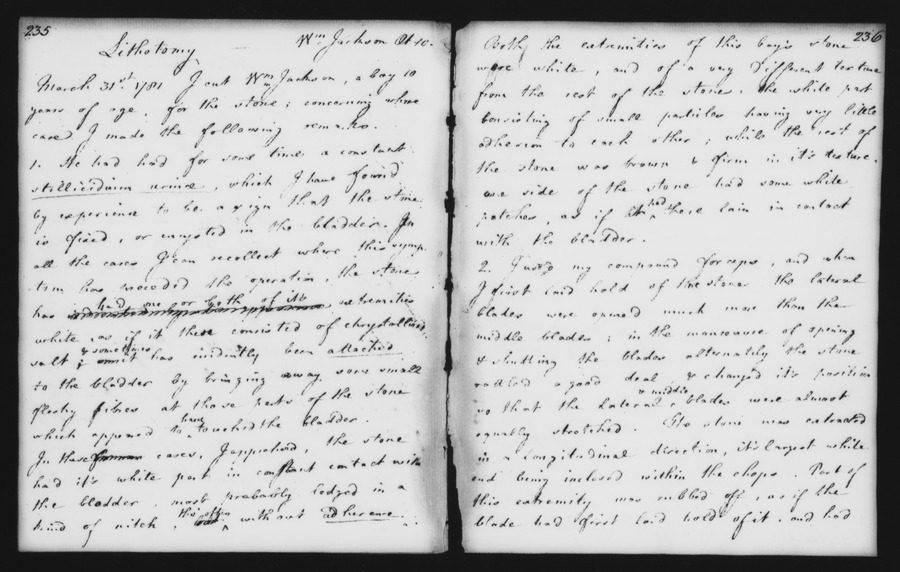 235
Lithotomy Wm Jackson Æt 10.
March 31st 1781 I cut Wm Jackson, a boy 10
years of age, for the stone; concerning whose
case I made the following remarks.
1. He had had for some time a constant
stillicidium urinæ, which I have found
by experience to be a sign that the stone
is fixed, or encysted in the bladder. In
all the cases I can recollect where this symp-
tom has preceded the operation, the stone
has had one or both of its extremities
white, as if it there consisted of chrystallised
salt; & sometimes it has evidently been attached
to the bladder by bringing away some small
fleshy fibres at those parts of the stone
which appeared to have touched the bladder.
In these cases, I apprehend, the stone
had it's white part in constant contact with
the bladder, most probably lodged in a
kind of nitch, tho' often without adherence.
236
Both the extremities of this boy's stone
were white, and of a very different texture
from the rest of the stone: the white part
consisting of small particles having very little
adhesion to each other; while the rest of
the stone was brown & firm in it's texture.
one side of the stone had some white
patches, as if it had there lain in contact
with the bladder.
2. I used my compound forceps, and when
I first laid hold of the stone the lateral
blades were opened much more than the
middle blades: in the manoeuvre of opening
& shutting the blades alternately the stone
rattled a good deal, & changed it's position
so that the lateral & middle blades were almost
equally stretched. The stone was extracted
in a longitudinal direction, it's largest white
end being inclosed within the chops. Part of
this extremity was rubbed off, as if the
blade had first laid hold of it, and had